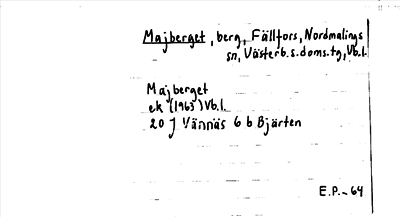 Majberget, berg, Fällfors, Nordmalings
sn, Västerb.s.doms.tg, Vb.l.
Majberget
ek (1963) Vb.l.
20 J Vännäs 6 b Bjärten
E.P.-64